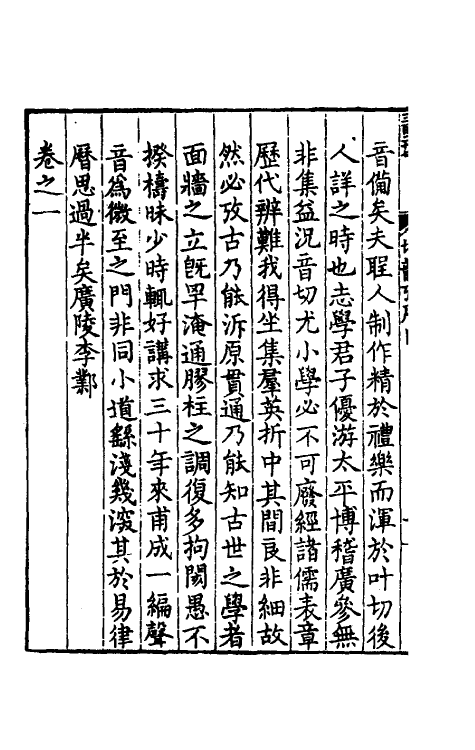 音備矣夫聖人制作精於禮樂而渾於叶切後
人詳之時也志學君子優游太平博稽廣參無
非集益況音切尤小學必不可廢經諸儒表章
歷代辨難我得坐集羣英折中其間良非細故
然必攷古乃能泝原貫通乃能知古世之學者
面牆之立旣罕淹通膠柱之調復多拘閡愚不
揆檮昧少時輒好講求三十年來甫成一編聲
音爲微至之門非同小道繇淺幾深其於易律
曆思過半矣廣陵李鄴
卷之一